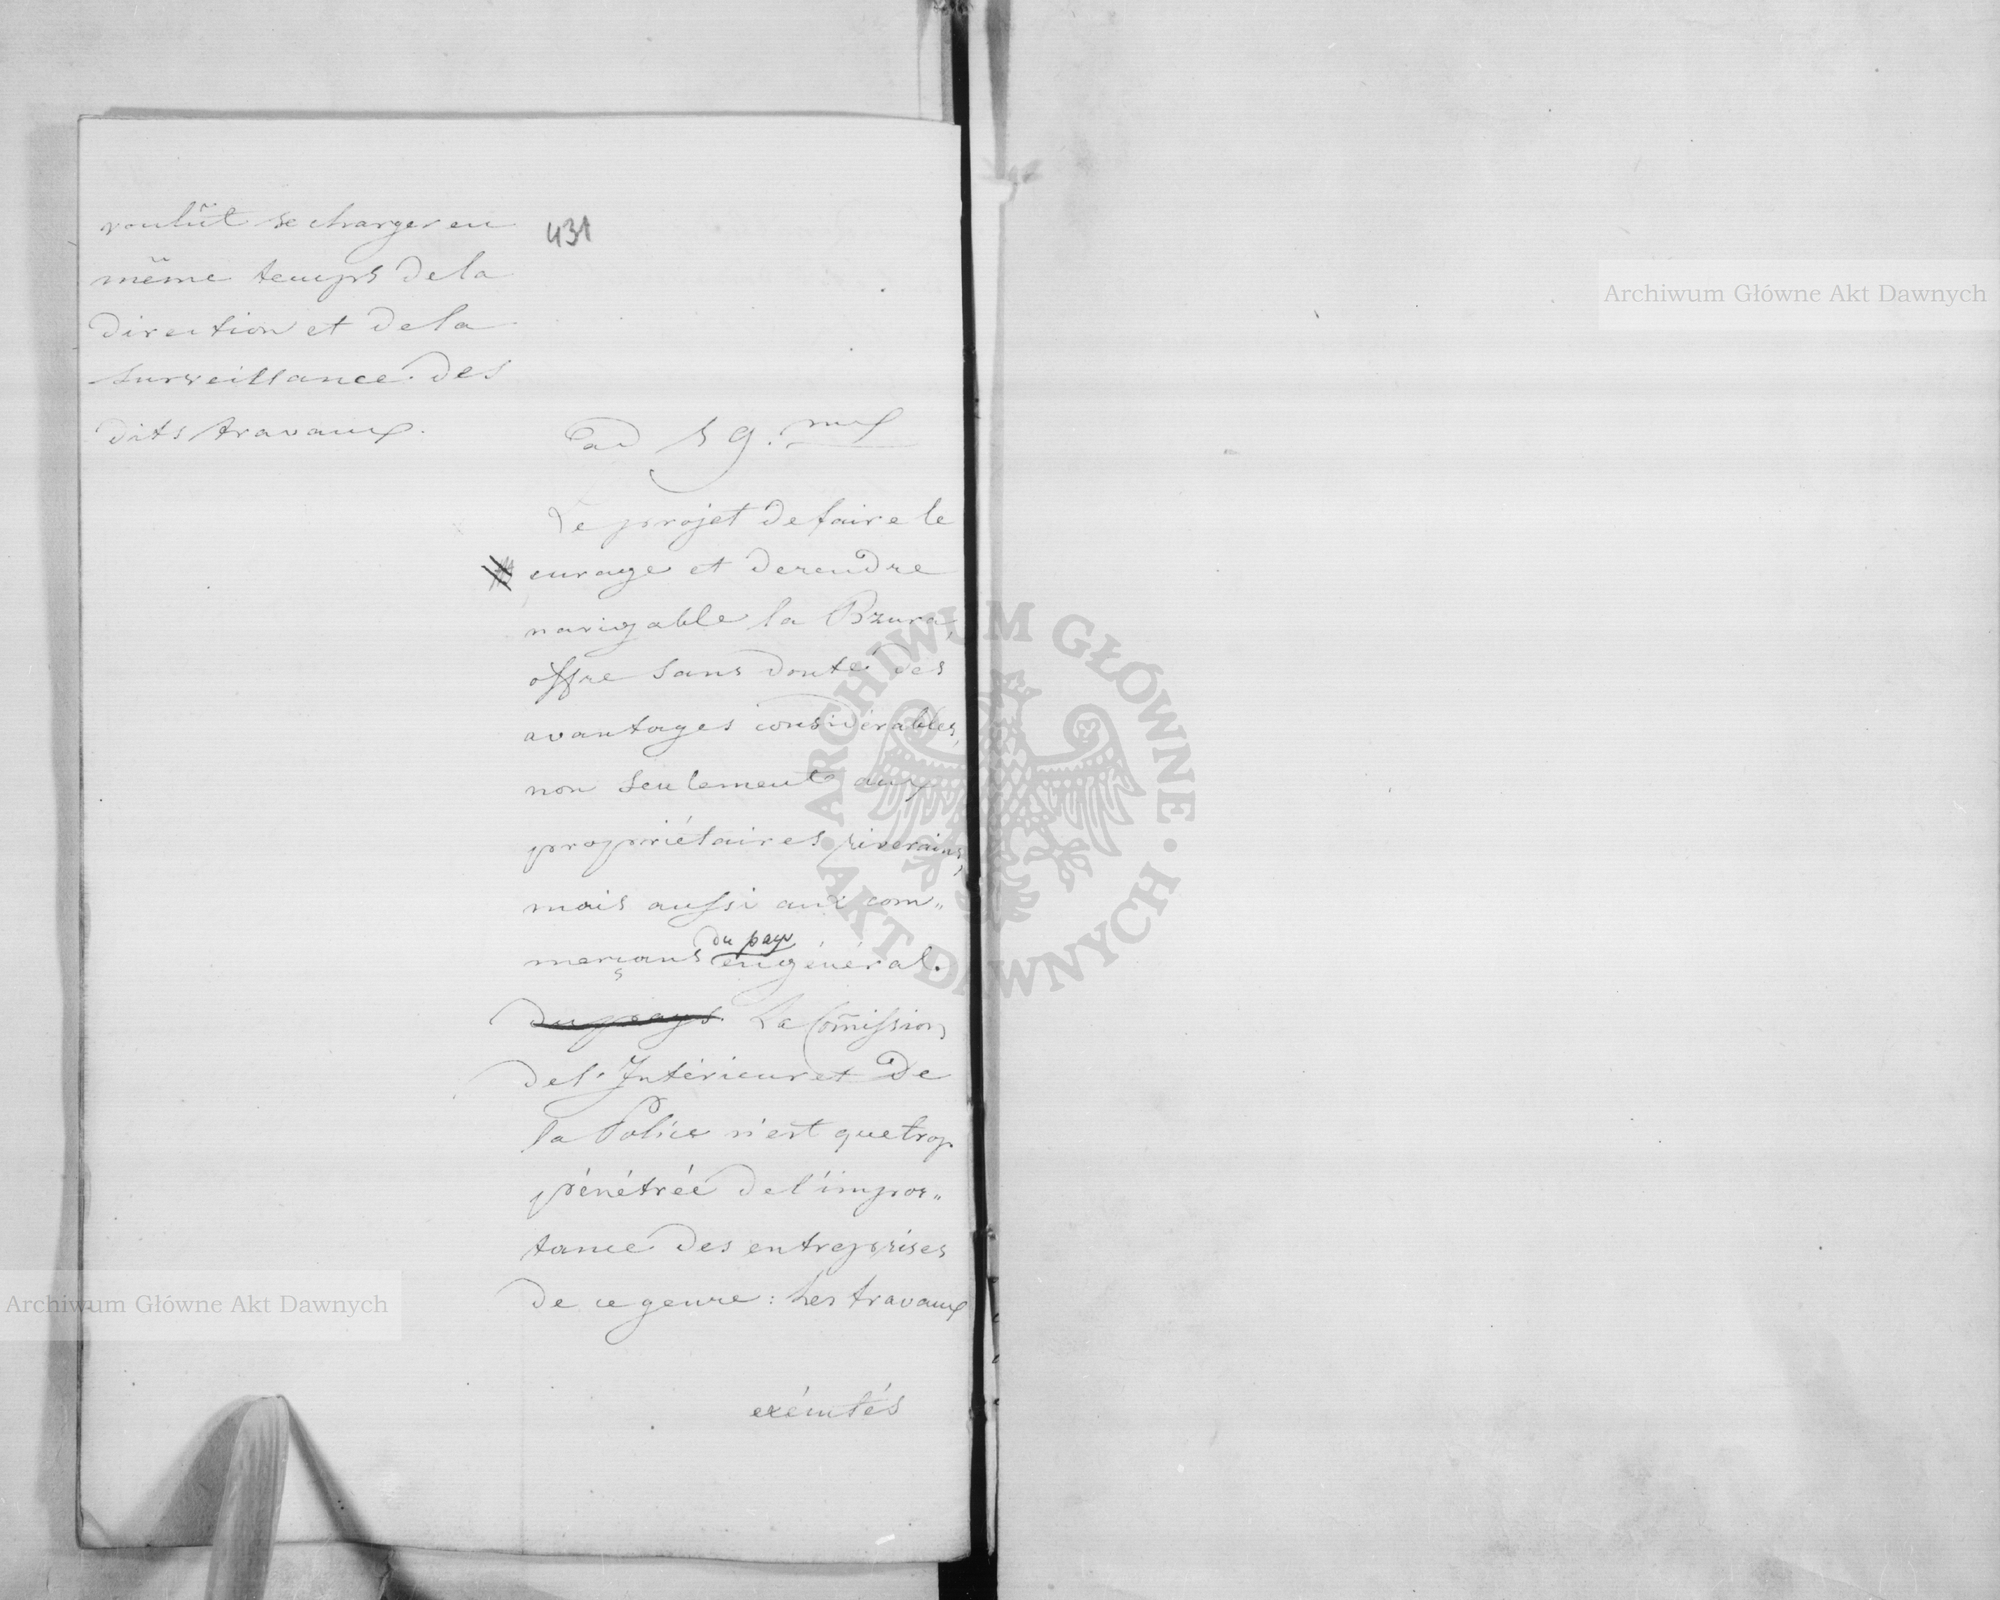 voulût se charger en
même temps de la
direction et de la
surveillance des
dits travaux.
431
ad 59.me
Le projet de faire le
curage et de rendre
navigable la Bzura,
offre sans doute des
avantages considérables,
non seulement aux
propriétaires riverains,
mais aussi aux com„
merçans du pays en général.
du pays. La Com̃ission
de l'Intérieur et De
la Police n'est que trop
pénétrée de l'impor„
tance des entreprises
de ce genre: Les travaux
exécutés
Archiwum Główne Akt Dawnych
Archiwum Główne Akt Dawnych
ARCHIWUM GŁÓWNE
AKT DAWNYCH